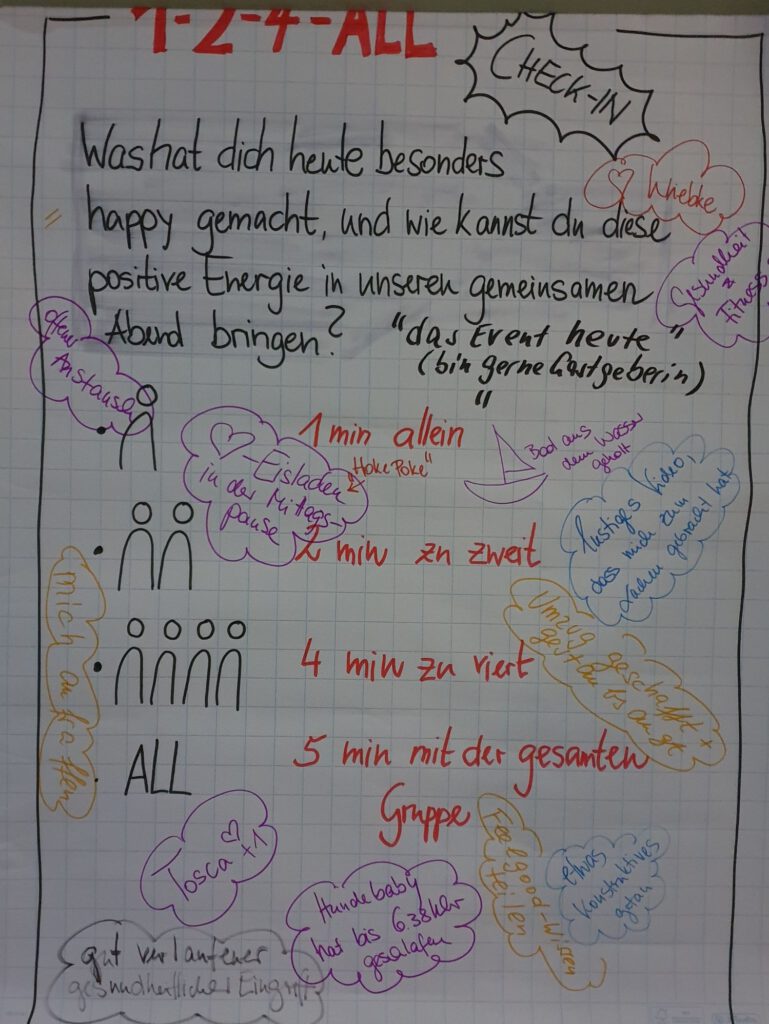 1-2-4-ALL
CHECK-IN
Was hat dich heute besonders
happy gemacht, und wie kannst du diese
positive Energie in unseren gemeinsamen
Abend bringen?
♡ Wiebke
Gesundheit
&
Fitness
"das Event heute"
(bin gerne Gastgeberin)
"
Austauschen
1 min allein
♡-Eisladen
"Hoke Poke"
in der Mittags-
pause
Boot aus
dem Wasser
geholt
2 min zu zweit
lustiges Video,
dass mich zum
Lachen gebracht hat
mich
4 min zu viert
Umzug geschafft
ALL
5 min mit der gesamten
Gruppe
Tosca ♡ +1
Hundebaby
hat bis 6.38 Uhr
geschlafen
Feelgood-Wissen
teilen
etwas
Konstruktives
getan
gut verlaufener
gesundheitlicher Eingriff